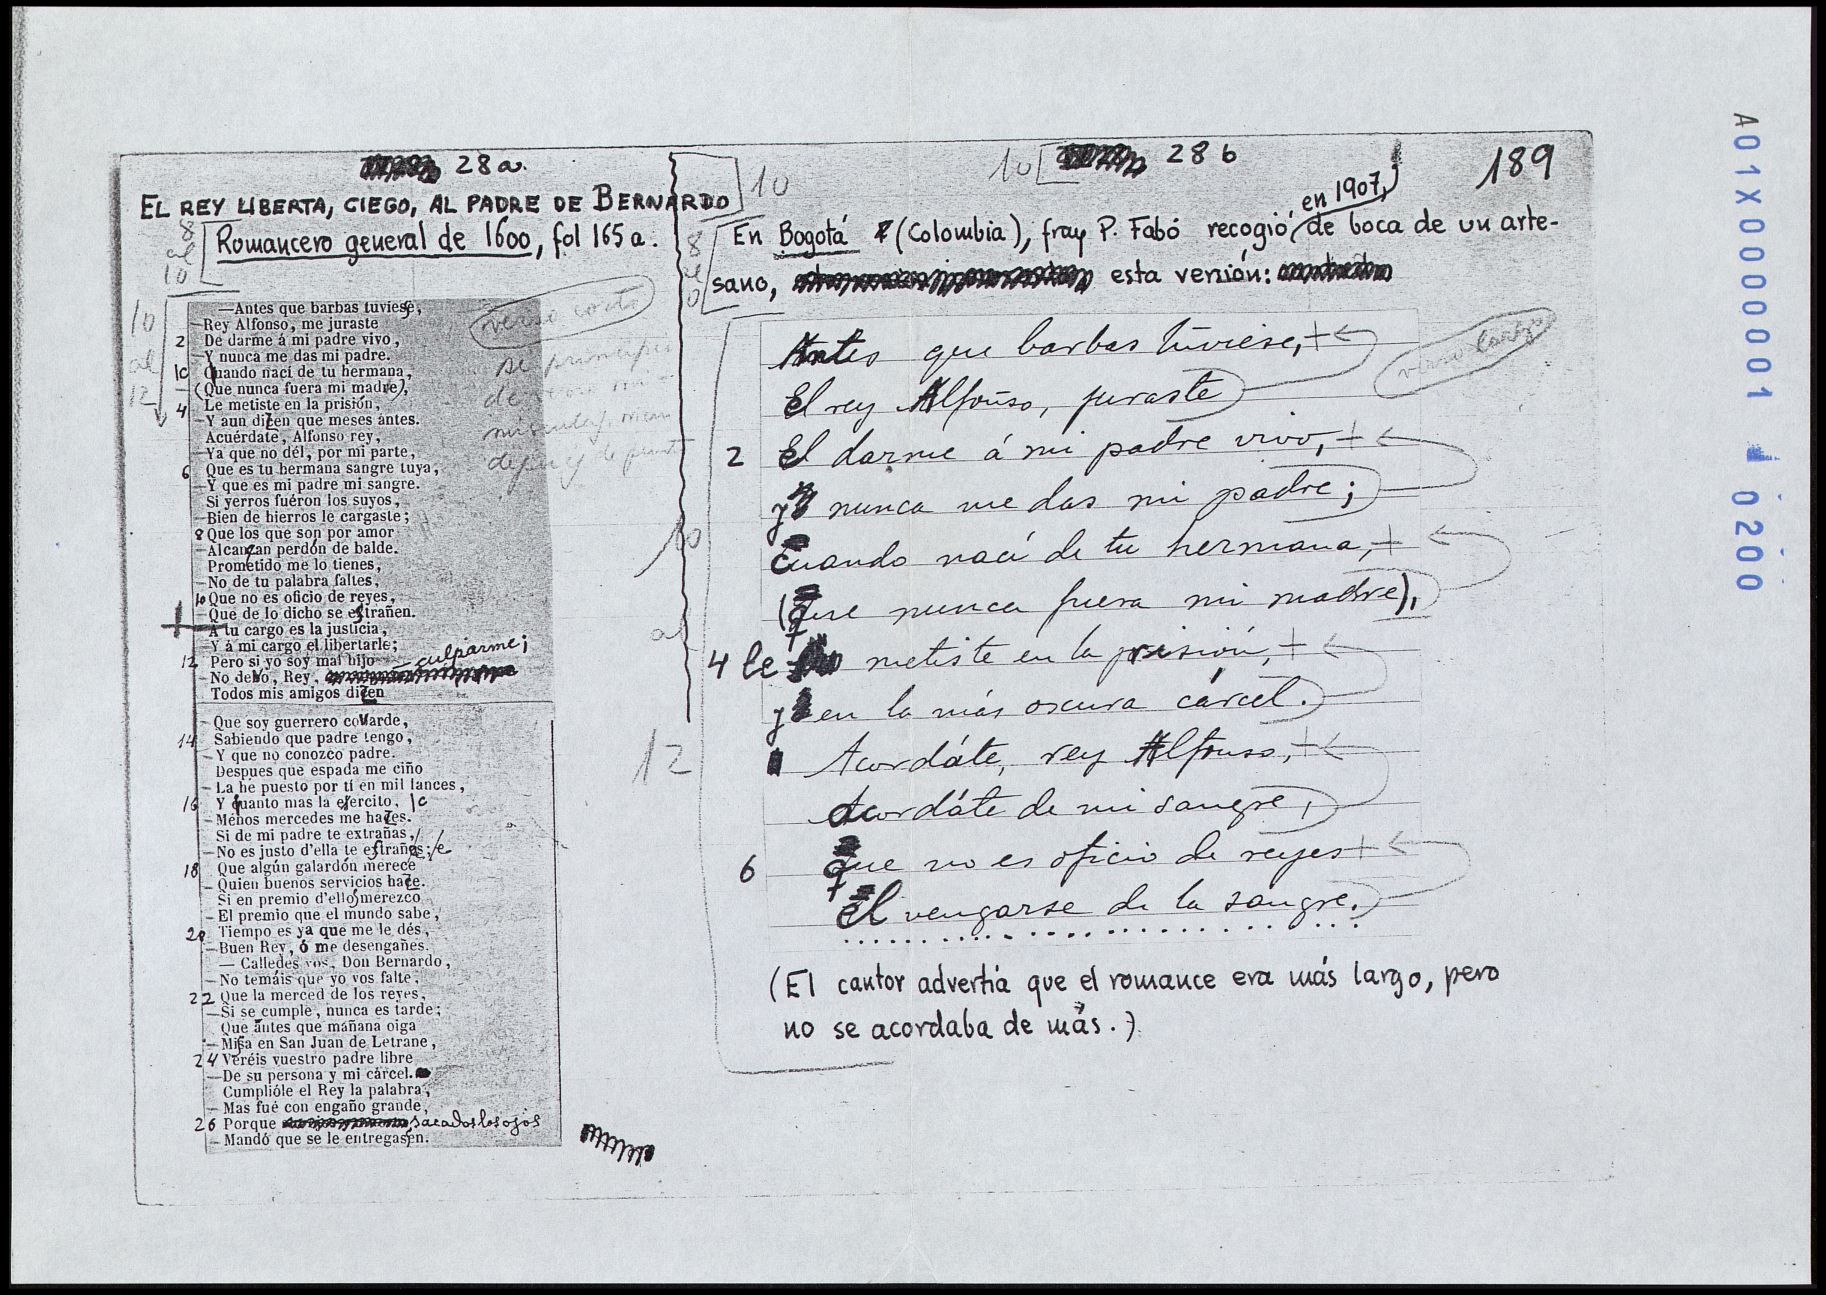 28a.
EL REY LIBERTA, CIEGO, AL PADRE DE BERNARDO
8 al 10
Romancero general de 1600, fol 165a.
10 al 12
verso corto
se principia
de
—Antes que barbas tuviese,
Rey Alfonso, me juraste
2 De darme á mi padre vivo,
Y nunca me das mi padre.
Cuando nací de tu hermana,
(Que nunca fuera mi madre),
4 Le metiste en la prisión,
Y aun dicen que meses ántes.
Acuérdate, Alfonso rey,
Ya que no dél, por mi parte,
6 Que es tu hermana sangre tuya,
Y que es mi padre mi sangre.
Si yerros fuéron los suyos,
Bien de hierros le cargaste;
8 Que los que son por amor
Alcanzan perdón de balde.
Prometido me lo tienes,
No de tu palabra faltes,
10 Que no es oficio de reyes,
Que de lo dicho se estrañen.
A tu cargo es la justicia,
Y á mi cargo el libertarle;
12 Pero si yo soy mal hijo
No debo, Rey, culparme;
Todos mis amigos dizen
Que soy guerrero covarde,
14 Sabiendo que padre tengo,
Y que no conozco padre.
Despues que espada me ciño
La he puesto por tí en mil lances,
16 Y quanto mas la ejercito, /c
Ménos mercedes me hazes.
Si de mi padre te extrañas,
No es justo d'ella te estrañes; /e
18 Que algún galardón merece
Quien buenos servicios haze.
Si en premio d'ellos merezco
El premio que el mundo sabe,
20 Tiempo es ya que me le dés,
Buen Rey, ó me desengañes.
— Calledes vos, Don Bernardo,
No temáis que yo vos falte,
22 Que la merced de los reyes,
Si se cumple, nunca es tarde;
Que ántes que mañana oiga
Misa en San Juan de Letrane,
24 Veréis vuestro padre libre
De su persona y mi cárcel.
Cumplióle el Rey la palabra,
Mas fué con engaño grande,
26 Porque sacados los ojos
Mandó que se le entregasen.
10
28b
189
10
8 al 10
En Bogotá (Colombia), fray P. Fabó recogió en 1907, de boca de un arte-
sano, esta versión:
verso largo
10 al 12
Antes que barbas tuviese,
El rey Alfonso, juraste
2 El darme á mi padre vivo,
y nunca me das mi padre;
Cuando nací de tu hermana,
(que nunca fuera mi madre),
4 le metiste en la prisión,
y en la más oscura cárcel.
Acordáte, rey Alfonso,
Acordáte de mi sangre,
6 que no es oficio de reyes
El vengarse de la sangre.
..............................
(El cantor advertía que el romance era más largo, pero
no se acordaba de más.)
A01X0000001 1 0200